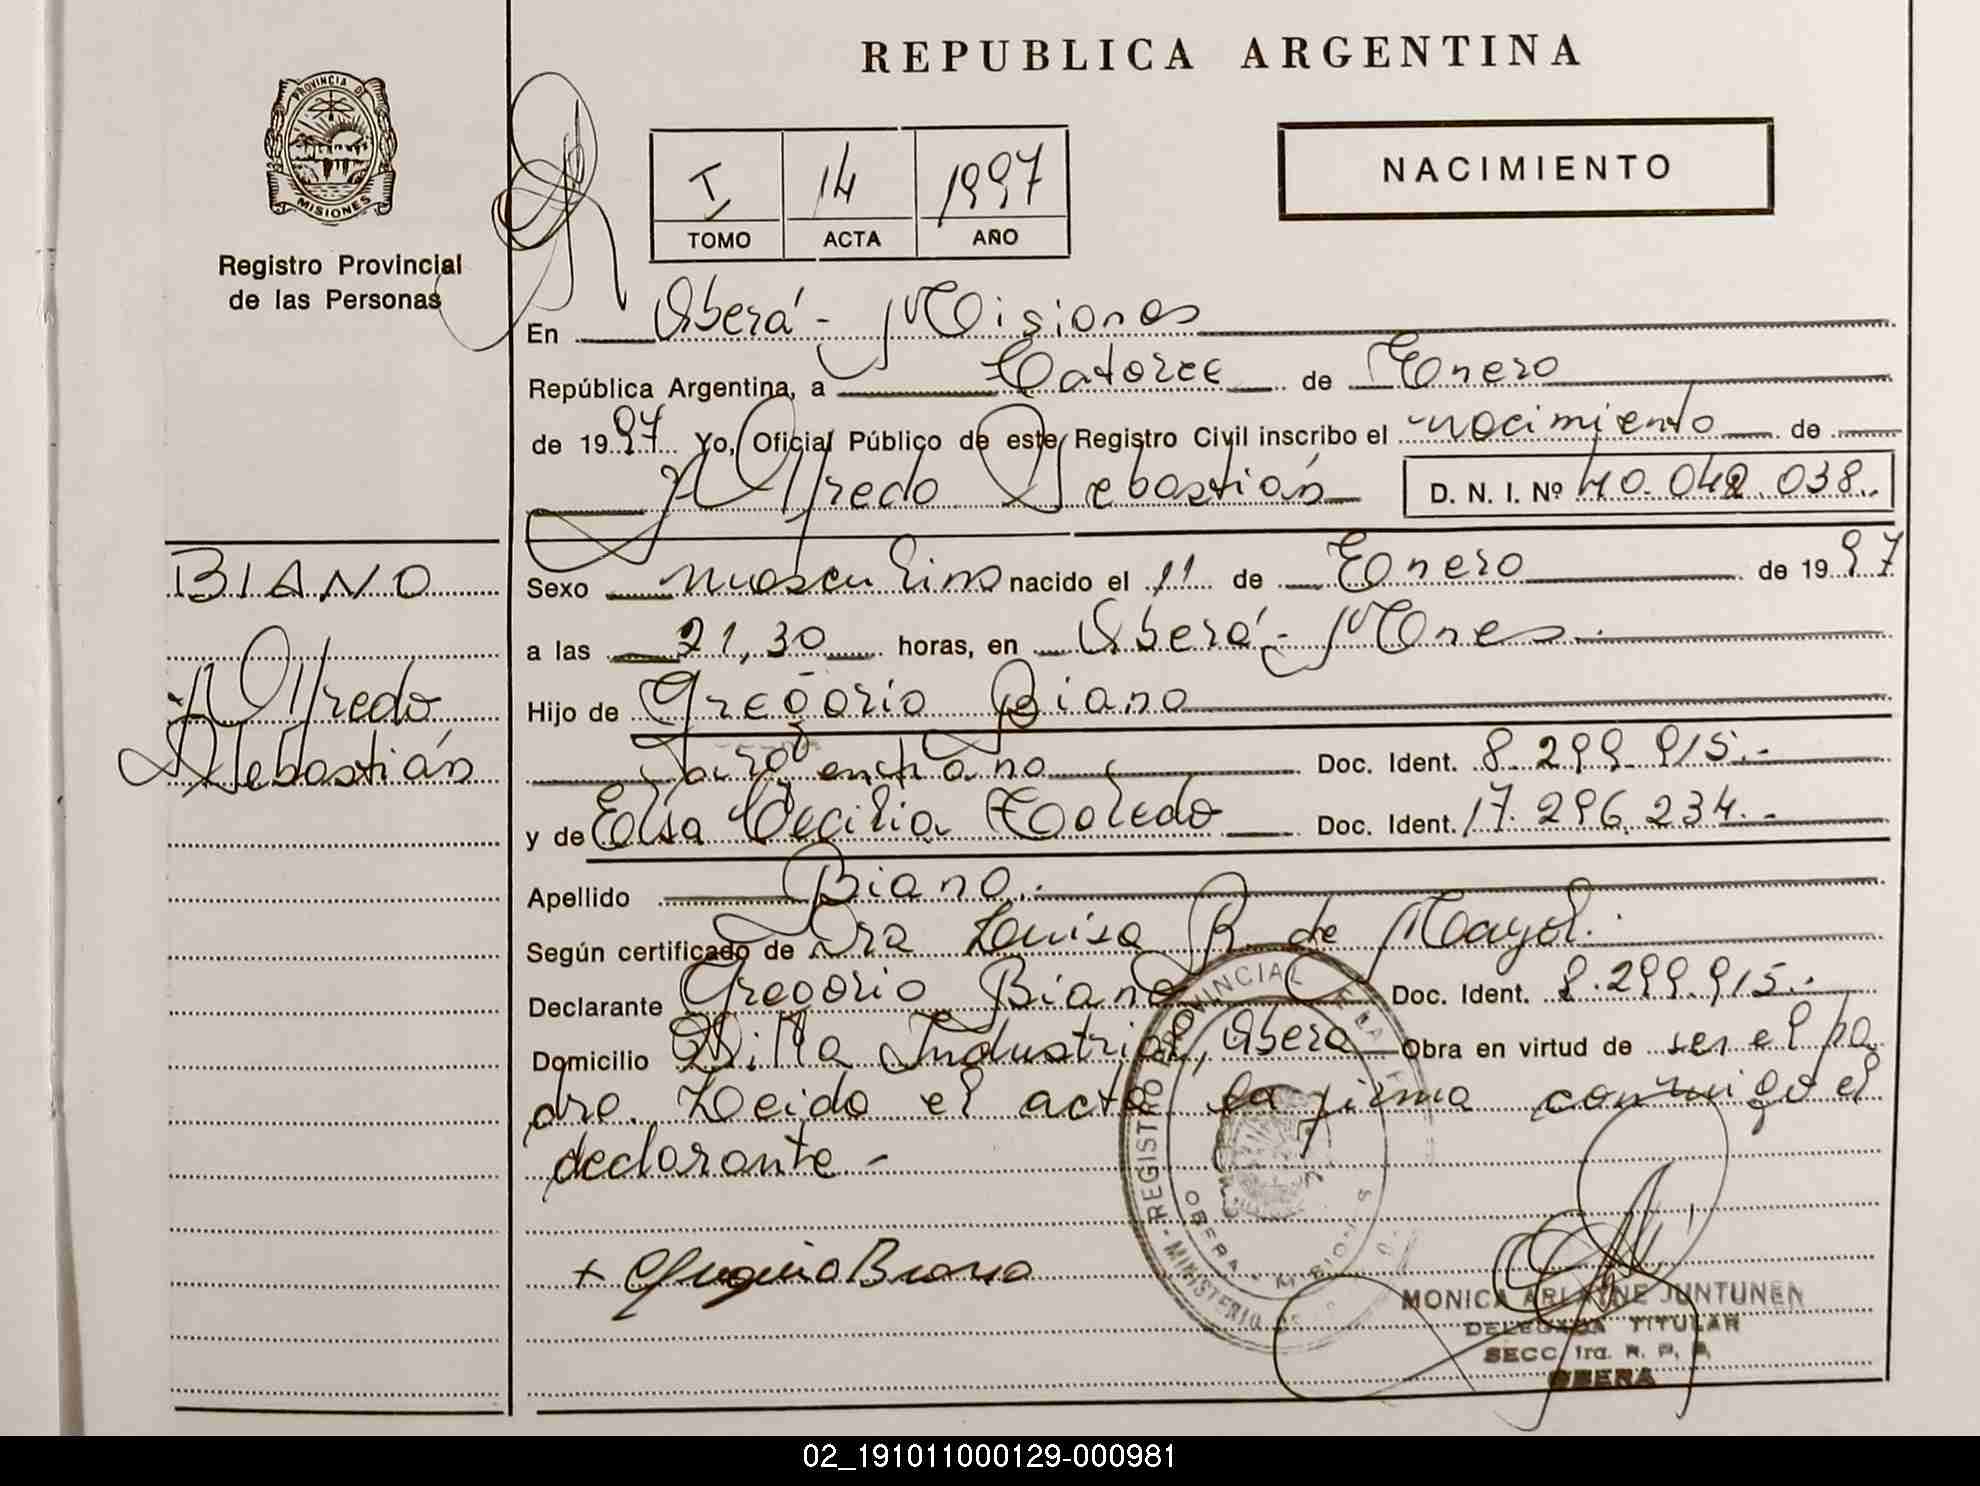 PROVINCIA DE
MISIONES
Registro Provincial
de las Personas
BIANO
Alfredo
Sebastián
REPUBLICA ARGENTINA
I 14 1997
TOMO ACTA AÑO
NACIMIENTO
En Oberá - Misiones
República Argentina, a Catorce de Enero
de 1997 Yo, Oficial Público de este Registro Civil inscribo el nacimiento de
Alfredo Sebastián D. N. I. Nº 40.042.038.
Sexo masculino nacido el 11 de Enero de 1997
a las 21,30 horas, en Oberá - Mnes.
Hijo de Gregorio Biano
Doc. Ident. 8.299.915.-
y de Elsa Cecilia Toledo Doc. Ident. 17.296.234.-
Apellido Biano.
Según certificado de Dra Luisa R. de Mayol.
Declarante Gregorio Biano Doc. Ident. 8.299.915.
Domicilio Villa Industrial, Oberá Obra en virtud de ser el pa
dre. Leido el acta la firma conmigo el
declarante -
REGISTRO PROVINCIAL DE LA
MINISTERIO DE
OBERA - MISIONES
+ Gregorio Biano
MONICA ARLAYNE JUNTUNEN
DELEGADA TITULAR
SECC. 1ra. R. P.
OBERA
02_191011000129-000981